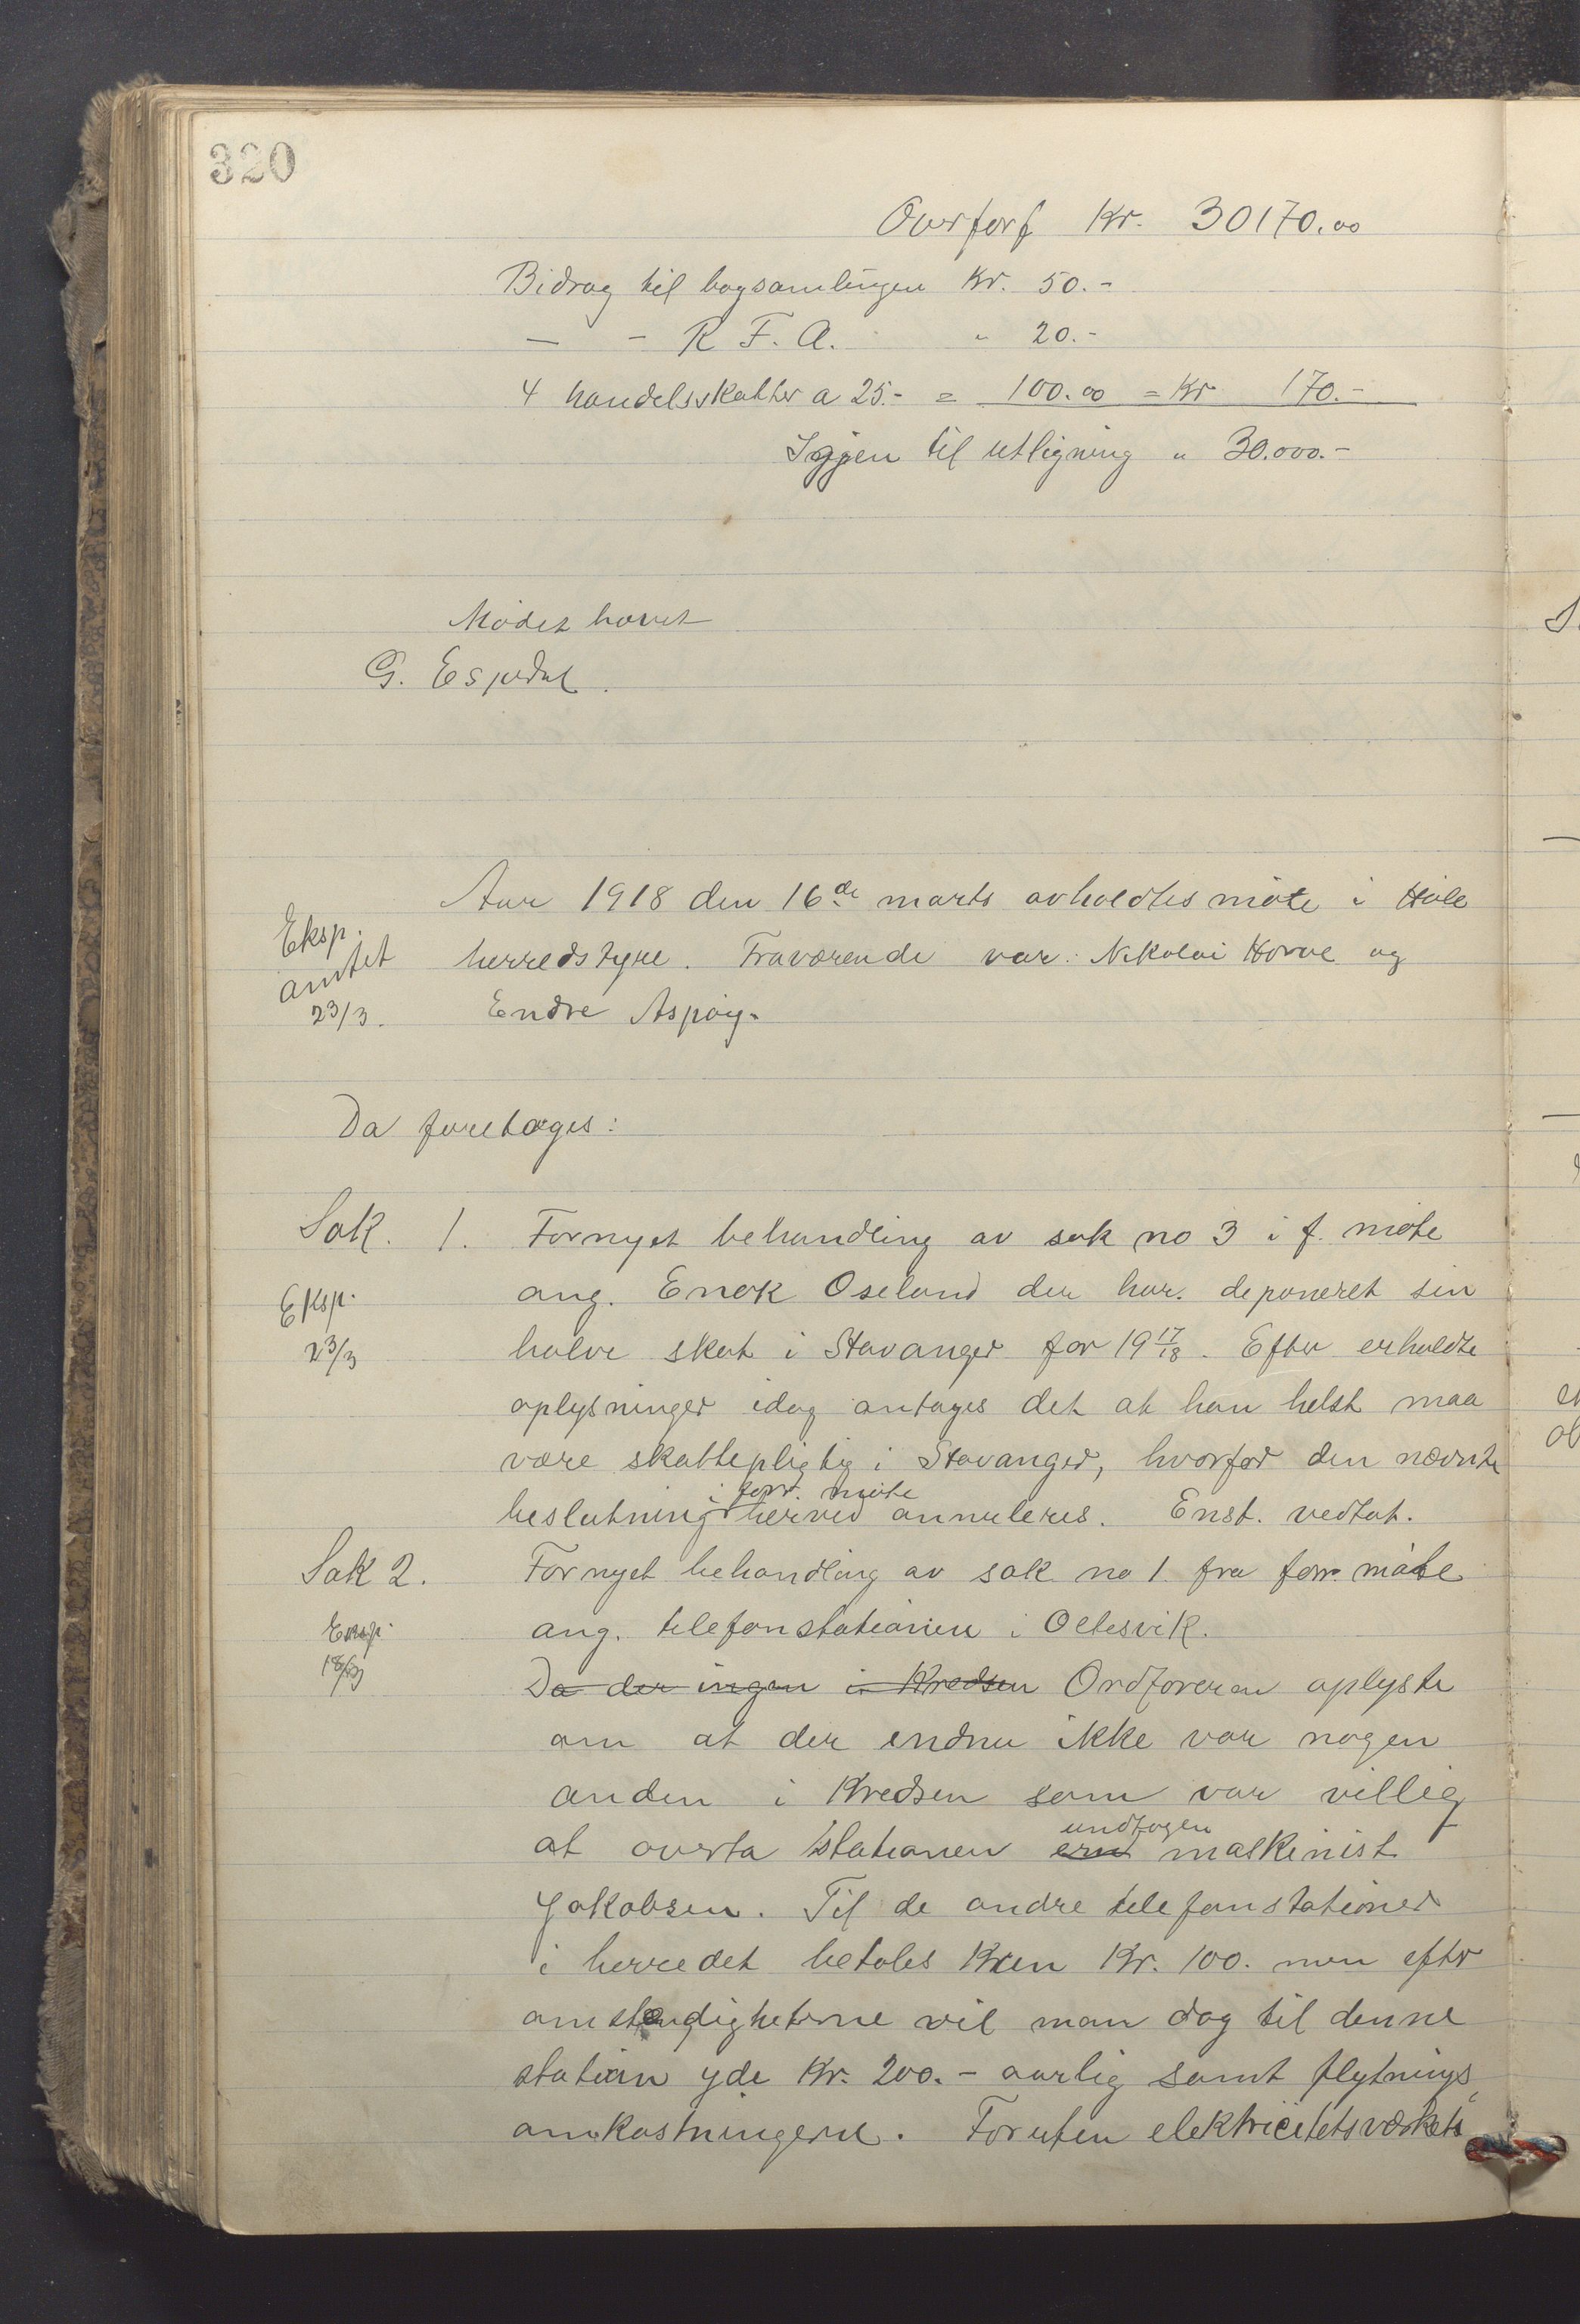 320
Overført Kr. 30170.00
Bidrag til bogsamlingen Kr. 50.-
— - R F. A. " 20.-
4 handelsskatter a 25.- = 100.00 = Kr 170.-
Igjen til utligning " 30.000.-
Mødet hævet
G. Espedal.
Aar 1918 den 16de marts avholdtes møte i Høle
Eksp.
amtet
23/3.
herredstyre. Fraværende var: Nikolai Horve og
Endre Aspøy.
Da foretoges:
Sak. 1. Fornyet behandling av sak no 3 i f. møte
Eksp.
23/3
ang. Enok Oseland der har deponeret sin
halve skat i Stavanger for 19 17/18. Efter erholdte
oplysninger idag antages det at han helst maa
være skattepligtig i Stavanger, hvorfor den nævnte
i forr. møte
beslutning herved annuleres. Enst. vedtat.
Sak 2. Fornyet behandling av sak no 1 fra forr. møte
Eksp.
18/3
ang. telefonstationen i Oltesvik.
Da der ingen i Kredsen Ordføreren oplyste
om at der endnu ikke var nogen
anden i Kredsen som var villig
undtagen
at overta stationen end maskinist
Jakobsen. Til de andre telefonstationer
i herredet betales Kun Kr. 100. men efter
omstændigheterne vil man dog til denne
station yde Kr. 200.- aarlig samt flytnings
omkostningerne. Foruten elektricitetsværkets